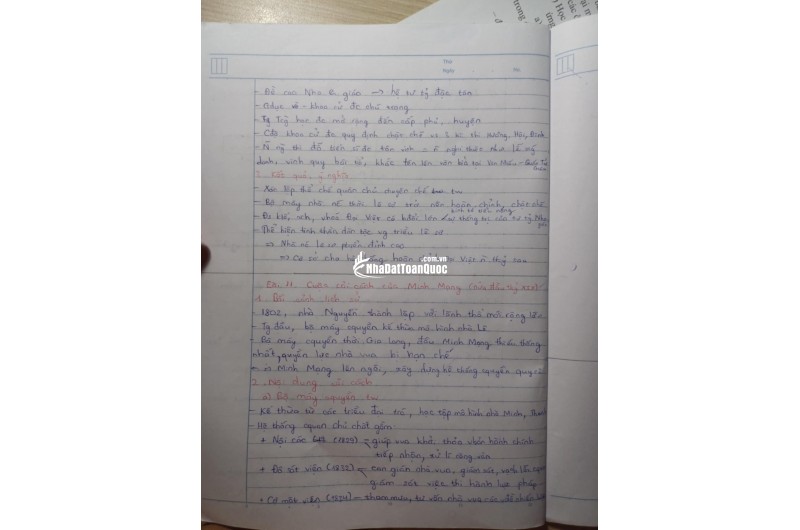 Thứ
Ngày No.
- Đề cao Nho giáo → hệ tư tg độc tôn
- Gdục - khoa cử đc chú trọng
- Tg học đc mở rộng đến cấp phủ, huyện
- Chế khoa cử đc quy định chặt chẽ vs 3 kì: thi Hương, Hội, Đình
- thi đỗ tiến sĩ đc tôn vinh = nghi thức như lễ xướng
danh, vinh quy bái tổ, khắc tên lên văn bia tại Văn Miếu - Quốc Tử
Giám
3. Kết quả, ý nghĩa
- Xác lập thể chế quân chủ chuyên chế tw
- Bộ máy nhà nc thời Lê sơ trở nên hoàn chỉnh, chặt chẽ
- Đs ktế, vh, Đại Việt có bước lớn
- Thể hiện tinh thần dân tộc triều Lê sơ
⇒ Nhà nc Lê sơ phát triển đỉnh cao
⇒ Cơ sở cho hệ thống hoàn Việt sau
NhaDatToanQuoc.com.vn
Bài 11. Cuộc cải cách của Minh Mạng (nửa đầu tkỷ XIX)
1. Bối cảnh lịch sử
- 1802, nhà Nguyễn thành lập với lãnh thổ mở rộng
- Tg đầu, bộ máy cquyền kế thừa mô hình nhà Lê
- Bộ máy cquyền thời Gia Long, đầu Minh Mạng thiếu thống
nhất, quyền lực nhà vua bị hạn chế
⇒ Minh Mạng lên ngôi, xây dựng hệ thống cquyền
2. Nội dung cải cách
a) Bộ máy cquyền tw
- Kế thừa từ các triều đại trc, học tập mô hình nhà Minh, Thanh
- Hệ thống cquan chủ chốt gồm:
+ Nội các (1829) - giúp vua khởi thảo văn bản hành chính
tiếp nhận, xử lí công văn
+ Đô sát viện (1832) - can gián nhà vua, giám sát,
giám sát việc thi hành luật pháp
+ Cơ mật viện (1834) - tham mưu, tư vấn nhà vua các vđề